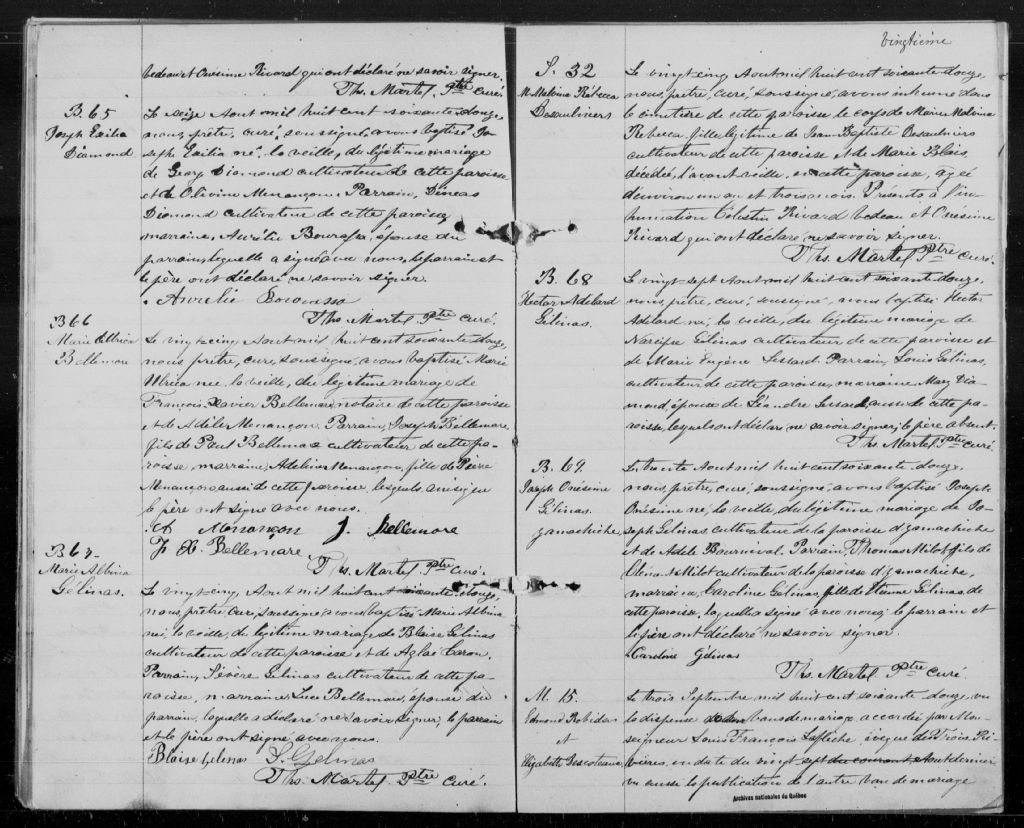 bedeau et Onésime Rivard qui ont déclaré ne savoir signer.
Ths. Martel Ptre Curé.
B. 65
Joseph Exilia
Diamond
Le seize Aout mil huit cent soixante douze,
nous, prêtre, curé, soussigné, avons baptisé Jo-
seph Exilia né, la veille, du légitime mariage
de Geory Diamond cultivateur de cette paroisse
et de Olivine Menançon. Parrain,
Diamond cultivateur de cette paroisse,
marraine, Aurélie épouse du
parrain, laquelle a signé avec nous, le parrain et
le père ont déclaré ne savoir signer.
Aurelie
Ths. Martel Ptre Curé.
B 66
Marie
Bellemare
Le vingt-cinq Aout mil huit cent soixante douze,
nous, prêtre, curé, soussigné, avons baptisé Marie
née, la veille, du légitime mariage de
François Xavier Bellemare, notaire de cette paroisse
et de Adeline Menançon. Parrain, Joseph Bellemare,
fils de Paul Bellemare cultivateur de cette pa-
roisse, marraine, Adeline Menançon, fille de Pierre
Menançon aussi de cette paroisse, lesquels ainsi que
le père ont signé avec nous.
A Menançon J. Bellemare
F X. Bellemare
Ths. Martel Ptre Curé.
B 67
Marie Albina
Gélinas.
Le vingt-cinq, Aout mil huit cent soixante douze,
nous, prêtre, curé, soussigné, avons baptisé Marie Albina
née, la veille, du légitime mariage de Blaise Gélinas
cultivateur de cette paroisse et de Aglaé Caron.
Parrain, Sévère Gélinas cultivateur de cette pa-
roisse, marraine, Luce Bellemare, épouse du
parrain, laquelle a déclaré ne savoir signer, le parrain
et le père ont signé avec nous.
Blaise Gelinas S. Gelinas
Ths. Martel Ptre Curé.
Vingtième
S. 32
M. Malvina Rébecca
Desaulniers
Le vingt-cinq Aout mil huit cent soixante douze,
nous, prêtre, curé, soussigné, avons inhumé dans
le cimetière de cette paroisse le corps de Marie Malvina
Rébecca fille légitime de Jean Baptiste Desaulniers
cultivateur de cette paroisse et de Marie Blais,
décédée, l'avant veille, en cette paroisse, agée
d'environ un an et trois mois. Présents à l'in-
humation Célestin Rivard bedeau et Onésime
Rivard qui ont déclaré ne savoir signer.
Ths. Martel Ptre Curé.
B. 68
Hector Adelard
Gélinas.
Le vingt-sept Aout mil huit cent soixante douze,
nous, prêtre, curé, soussigné, avons baptisé Hector
Adelard né, la veille, du légitime mariage de
Narcisse Gélinas cultivateur de cette paroisse et
de Marie Eugène Lessard. Parrain, Louis Gélinas,
cultivateur de cette paroisse, marraine Mary Dia-
mond, épouse de Léandre Lessard, aussi de cette pa-
roisse, lesquels ont déclaré ne savoir signer, le père absent.
Ths. Martel Ptre Curé
B. 69.
Joseph Onésime
Gélinas.
Yamachiche,
Le trente Aout mil huit cent soixante douze,
nous, prêtre, curé, soussigné, avons baptisé Joseph
Onésime né, la veille, du légitime mariage de Jo-
seph Gélinas cultivateur de la paroisse d'Yamachiche
et de Adèle Bournival. Parrain, Thomas Milot, fils de
Milot cultivateur de la paroisse d'Yamachiche,
marraine, Caroline Gélinas, fille de Etienne Gélinas de
cette paroisse, laquelle a signé avec nous, le parrain et
le père ont déclaré ne savoir signer.
Caroline Gélinas
Ths. Martel Ptre Curé.
M. 15.
Edmond Robidas
et
Elizabeth Descoteaux
Le trois Septembre mil huit cent soixante douze, vu
la dispense de deux bans de mariage accordée par Mon-
seigneur Louis François Lafléche évèque des Trois-Ri-
vières, en date du vingt sept du courant Aout dernier
vu aussi la publication de l'autre ban de mariage
Archives nationales du Québec